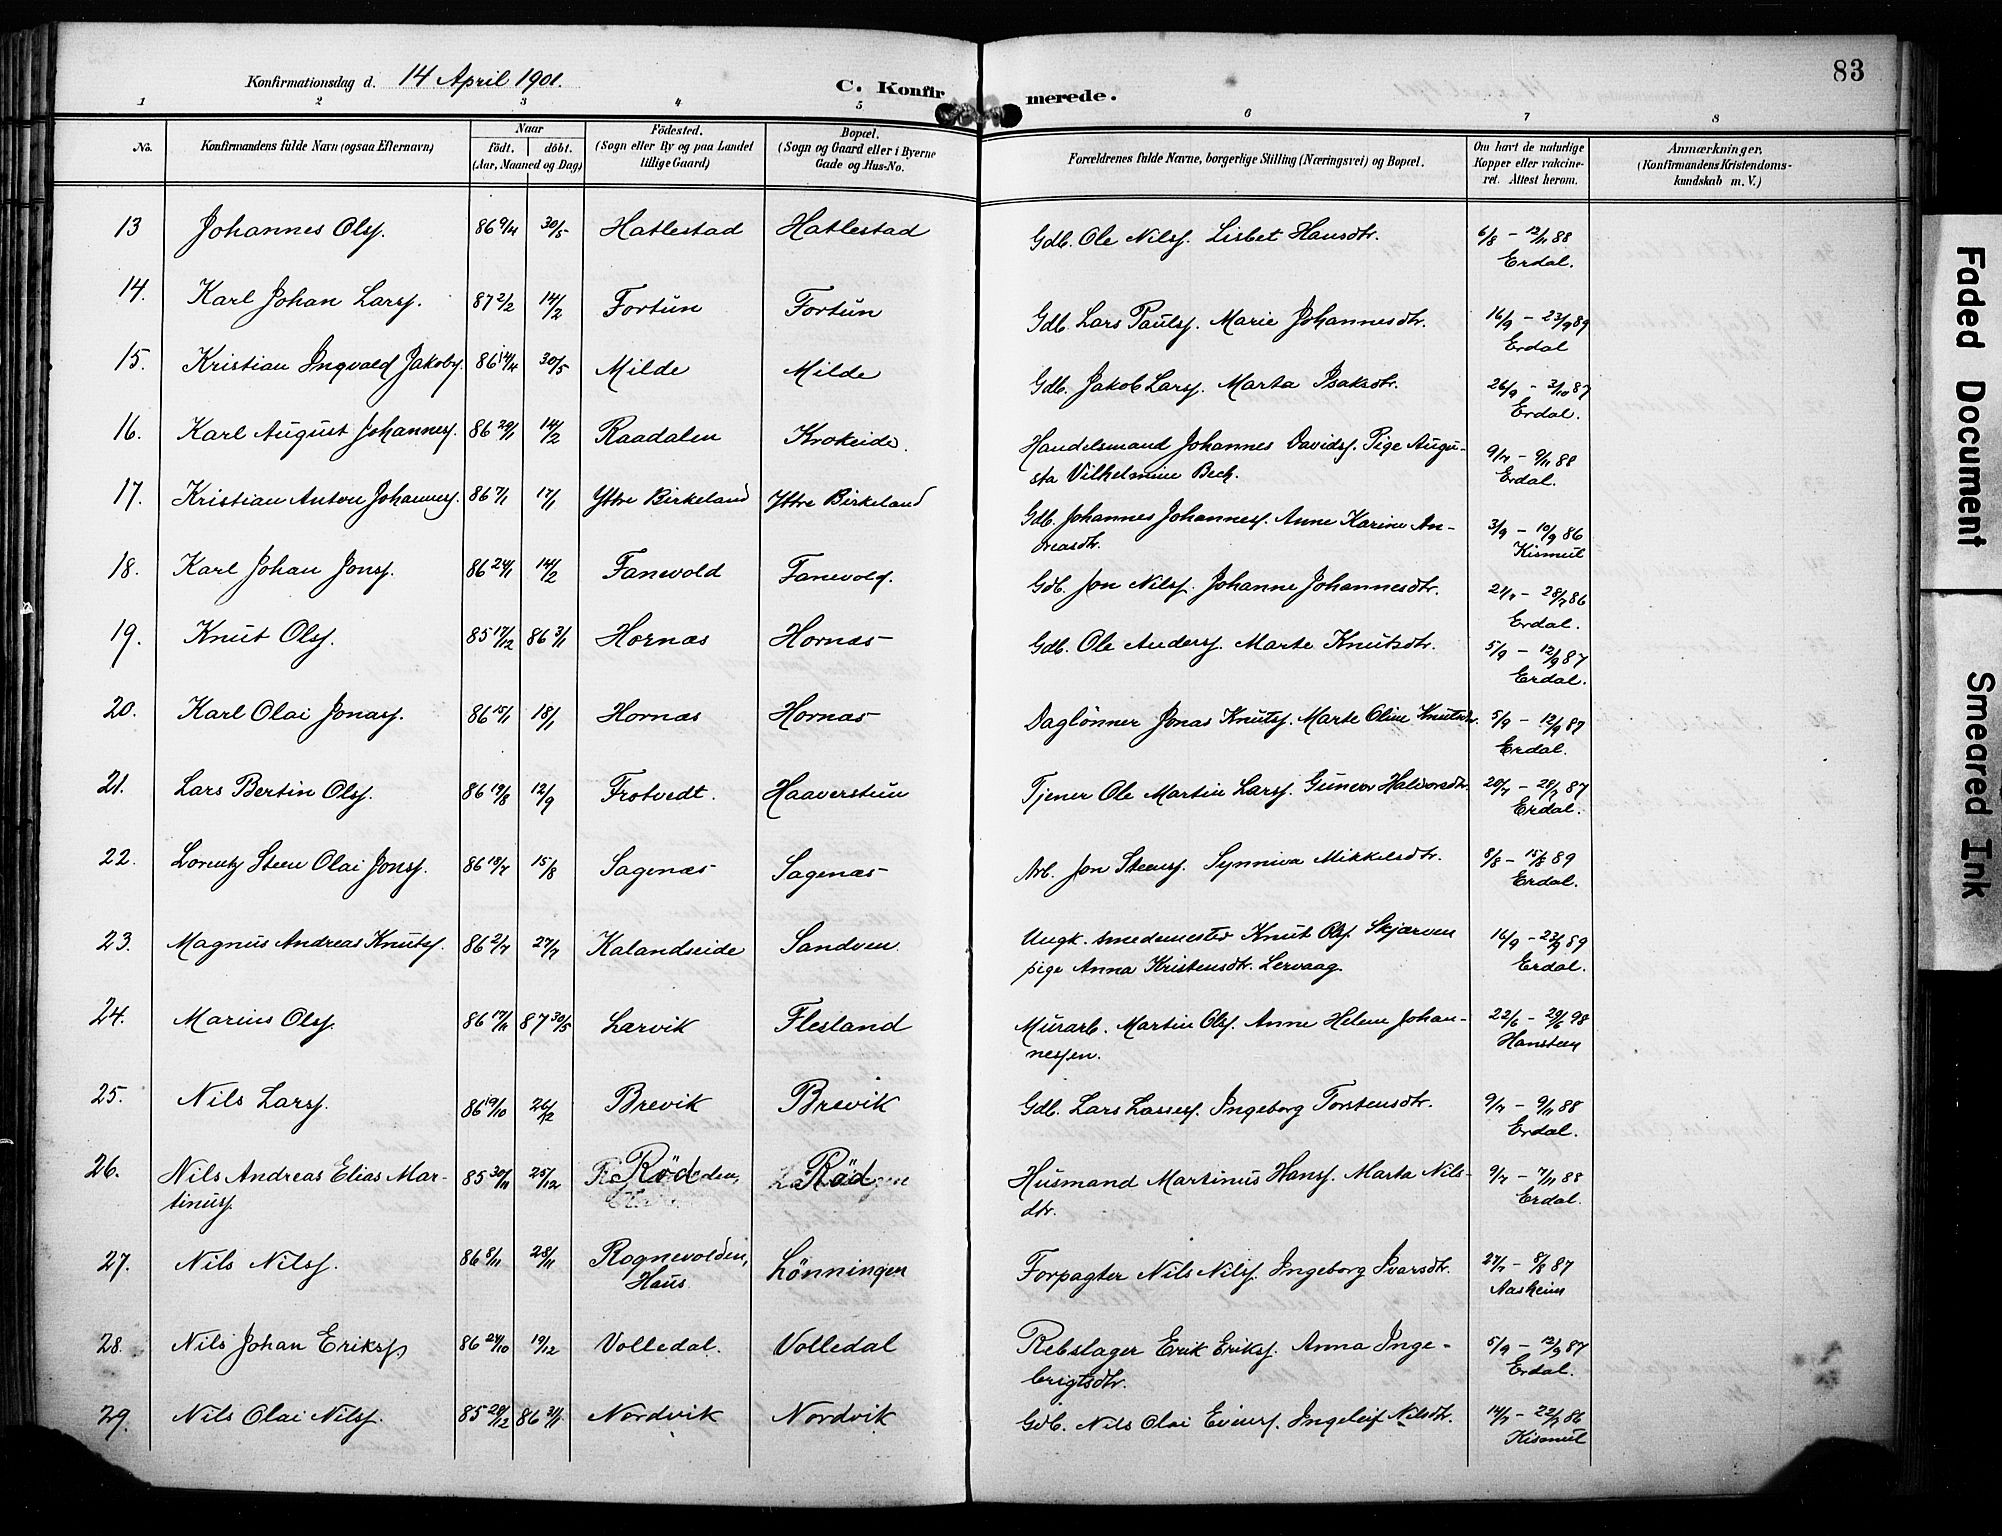 83
Konfirmationsdag d. 14 April 1901.
C. Konfirmerede.
1 2 3 4 5 6 7 8
No.
Konfirmandens fulde Navn (ogsaa Efternavn)
Naar
födt. döbt.
(Aar, Maaned og Dag)
Födested.
(Sogn eller By og paa Landet
tillige Gaard)
Bopæl.
(Sogn og Gaard eller i Byerne
Gade og Hus-No.
Forældrenes fulde Navne, borgerlige Stilling (Næringsvei) og Bopæl.
Om havt de naturlige
Kopper eller vakcine-
ret. Attest herom.
Anmærkninger,
(Konfirmandens Kristendoms-
kundskab m. V.)
13 Johannes Olsf. 86 9/4 30/5 Hatlestad Hatlestad Gdb. Ole Nilsf. Lisbet Hansdtr. 6/8 - 12/11 88
Erdal.
14. Karl Johan Larsf. 87 2/2 14/2 Fortun Fortun Gdb. Lars Paulsf. Marie Johannesdtr. 16/9 - 23/9 89
Erdal
15. Kristian Ingvald Jakobsf. 86 14/4 30/5 Milde Milde Gdb. Jakob Larsf. Marta Isaksdtr. 26/9 - 3/10 87
Erdal.
16. Karl August Johannesf. 86 29/1 14/2 Raadalen Krokeide. Handelsmand Johannes Davidsf. Pige Augu-
sta Vilhelmine Beck. 9/7 - 9/11 88
Erdal.
17. Kristian Anton Johannesf. 86 7/1 17/1 Yttre Birkeland Yttre Birkeland Gdb. Johannes Johannesf. Anne Karine An-
dreasdtr. 3/9 - 10/9 86
Kismul
18. Karl Johan Jonsf. 86 24/1 14/2 Fanevold Fanevold. Gdb. Jon Nilsf. Johanne Johannesdtr. 21/7 - 28/7 86
Erdal.
19. Knut Olsf. 85 17/12 86 3/1 Hornæs Hornæs Gdb. Ole Andersf. Marte Knutsdtr. 5/9 - 12/9 87
Erdal.
20. Karl Olai Jonasf. 86 15/1 18/1 Hornæs Hornæs Daglönner Jonas Knutsf. Marte Oline Knutsdtr. 5/9 - 12/9 87
Erdal.
21. Lars Bertin Olsf. 86 19/8 12/9 Frotvedt. Haaverstun Tjener Ole Martin Larsf. Gunvor Halvorsdtr. 20/7 - 28/7 87
Erdal.
22. Lorentz Steen Olai Jonsf. 86 18/7 15/8 Sagenæs Sagenæs Arb. Jon Steensf. Synniva Mikkelsdtr. 8/8 - 15/8 89
Erdal.
23. Magnus Andreas Knutsf. 86 2/7 27/7 Kalandseide Sandven Ungk. smedemester Knut Olsf. Skjærven
pige Anna Kristensdtr. Lervaag. 16/9 - 23/9 89
Erdal.
24. Marius Olsf. 86 17/11 87 30/5 Larvik Flesland Murarb. Martin Olsf. Anne Helene Johan-
nessen. 22/6 - 29/6 98
Hansteen
25. Nils Larsf. 86 19/10 26/12 Brevik Brevik Gdb. Lars Lassesf. Ingeborg Torstensdtr. 9/7 - 9/11 88
Erdal.
26. Nils Andreas Elias Mar-
tinusf. 85 30/11 25/12 Röd Röd Husmand Martinus Hansf. Marta Nils-
dtr. 9/7 - 7/11 88
Erdal.
27. Nils Nilsf. 86 8/11 28/11 Rognevolden,
Haus. Lönningen Forpagter Nils Nilsf. Ingeborg Ivarsdtr. 27/7 - 8/8 87
Aasheim
28. Nils Johan Eriksf. 86 24/10 19/12 Volledal. Volledal Rebslager Erik Eriksf. Anna Inge-
brigtsdtr. 5/9 - 12/9 87
Erdal.
29. Nils Olai Nilsf. 85 28/12 86 31/1 Nordvik Nordvik Gdb. Nils Olai Einersf. Ingeleif Nilsdtr. 14/7 - 22/7 86
Kismul
Faded Document
Smeared Ink